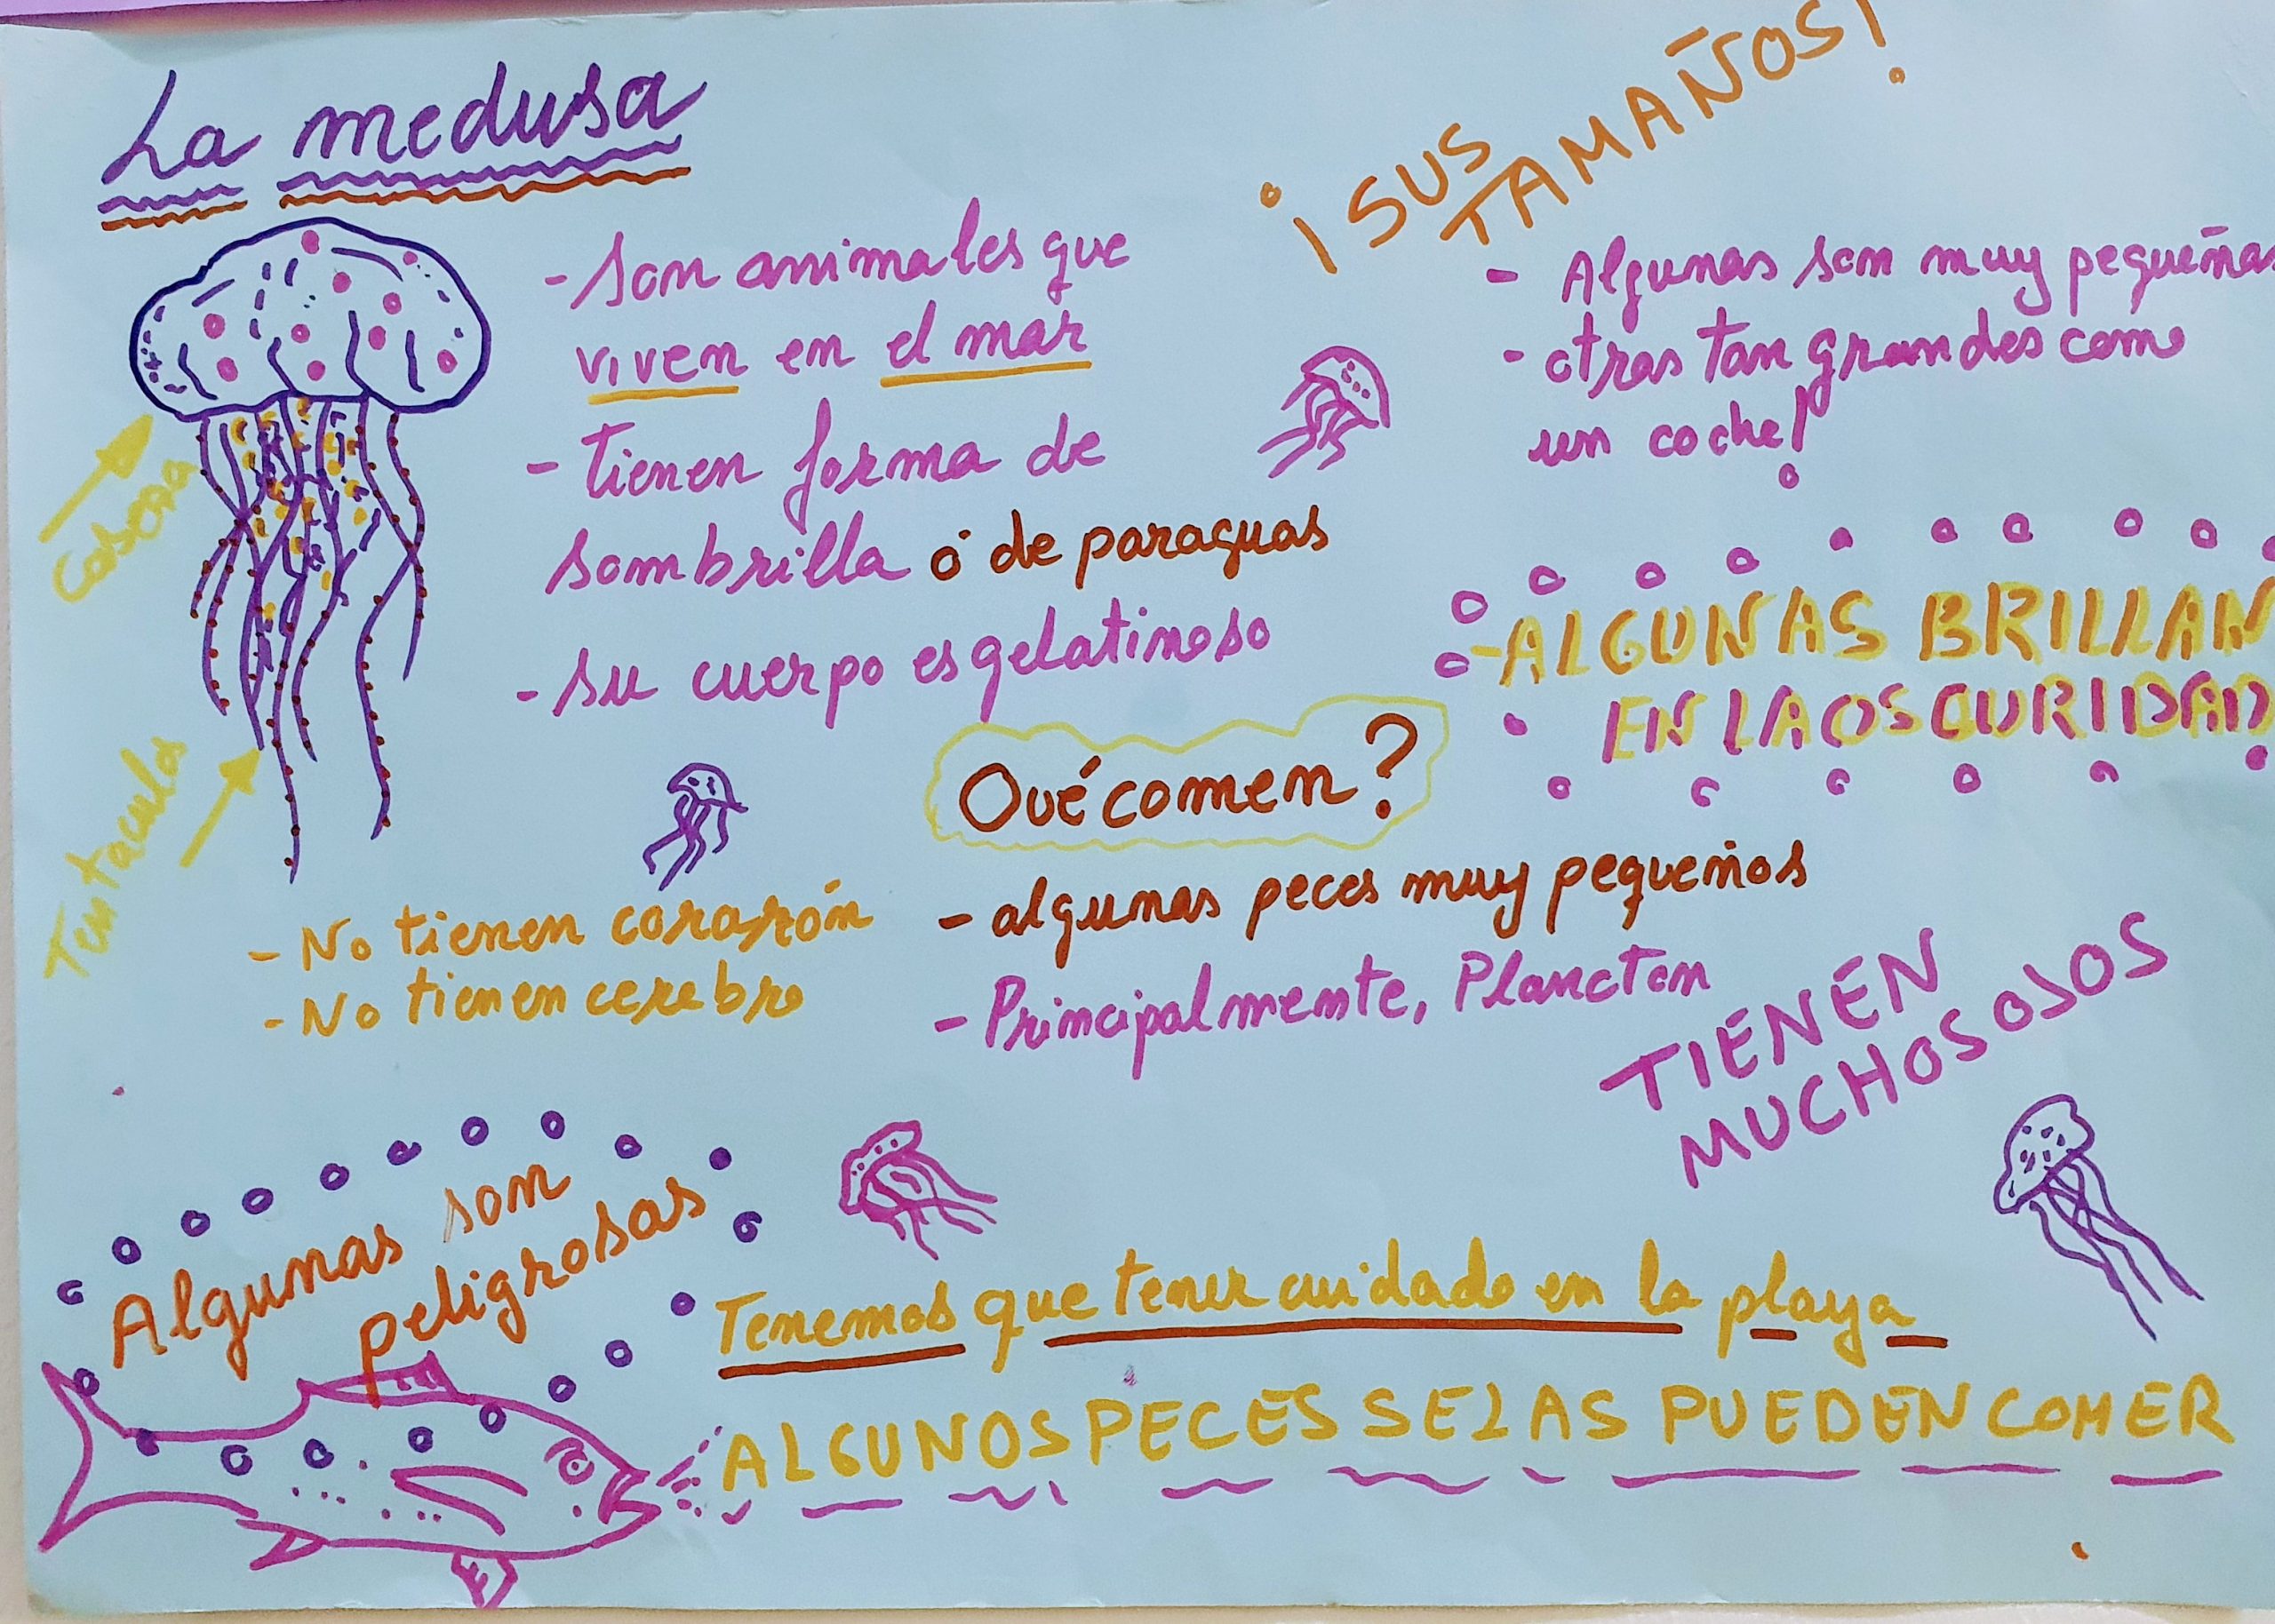 La medusa
- Son animales que
viven en el mar
- Tienen forma de
sombrilla ó de paraguas
- su cuerpo es gelatinoso
Cabeza
Tentacula
- No tienen corazón
- No tienen cerebro
¡SUS
TAMAÑOS!
- Algunas son muy pequeñas
- otras tan grandes como
un coche!
- ALGUNAS BRILLAN
EN LA OSCURIDAD
Qué comen?
- algunas peces muy pequeños
- Principalmente, Plancton
TIENEN
MUCHOS OJOS
Algunas son
peligrosas
Tenemos que tener cuidado en la playa
ALGUNOS PECES SE LAS PUEDEN COMER